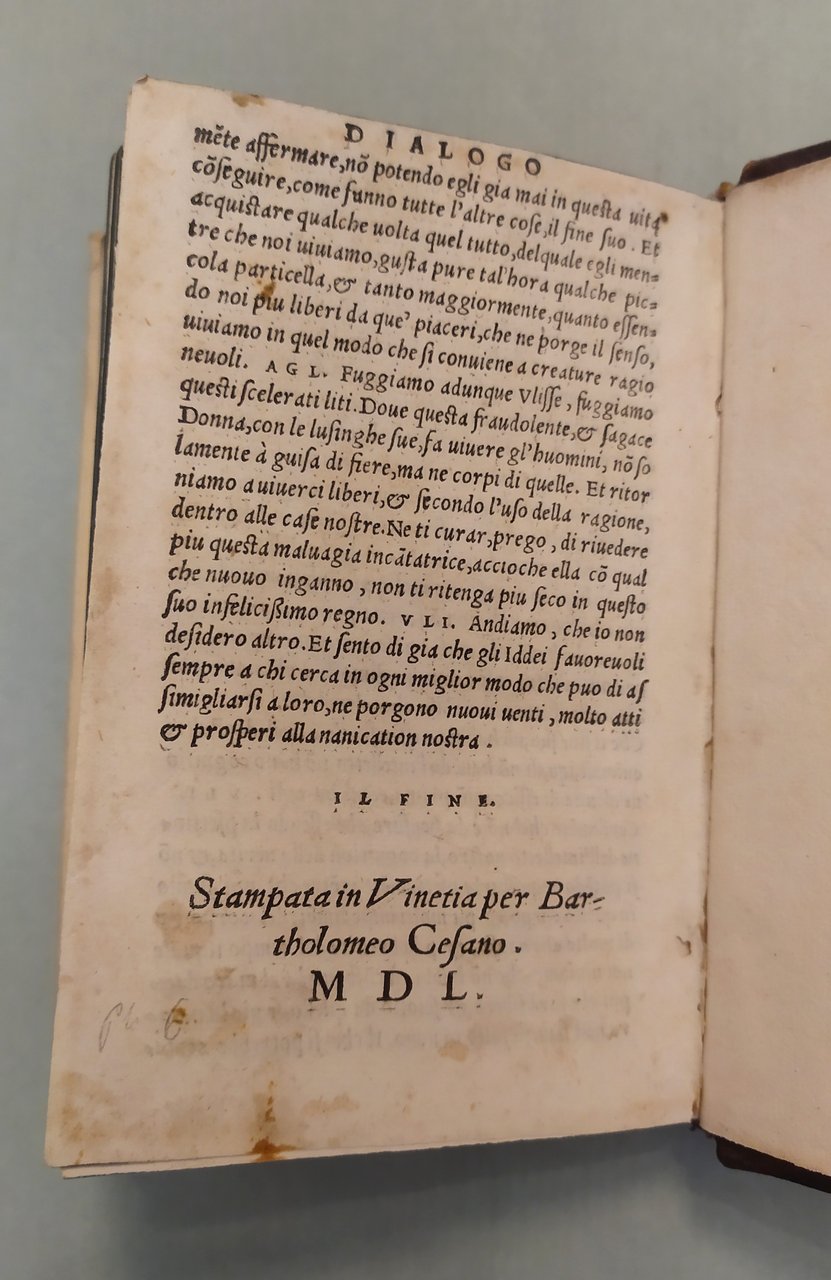 DIALOGO
mẽte affermare,nõ potendo egli gia mai in questa uita
cõſeguire,come fanno tutte l'altre coſe,il fine ſuo. Et
acquiſtare qualche uolta quel tutto,delquale egli men=
tre che noi uiuiamo,guſta pure tal'hora qualche pic=
cola particella,& tanto maggiormente,quanto eſſen=
do noi piu liberi da que' piaceri,che ne porge il ſenſo,
uiuiamo in quel modo che ſi conuiene a creature ragio
neuoli. AGL. Fuggiamo adunque Vliſſe, fuggiamo
queſti ſcelerati liti.Doue queſta fraudolente,& ſagace
Donna,con le luſinghe ſue,fa uiuere gl'huomini, nõ ſo
lamente à guiſa di fiere,ma ne corpi di quelle. Et ritor
niamo a uiuerci liberi,& ſecondo l'uſo della ragione,
dentro alle caſe noſtre.Ne ti curar,prego, di riuedere
piu queſta maluagia incãtatrice,accioche ella cõ qual
che nuouo inganno, non ti ritenga piu ſeco in queſto
ſuo infeliciſsimo regno. VLI. Andiamo, che io non
deſidero altro.Et ſento di gia che gli Iddei fauoreuoli
ſempre a chi cerca in ogni miglior modo che puo di aſ
ſimigliarſi a loro,ne porgono nuoui uenti, molto atti
& proſperi alla nanication noſtra.
IL FINE.
Stampata in Vinetia per Bar-
tholomeo Ceſano.
MDL.